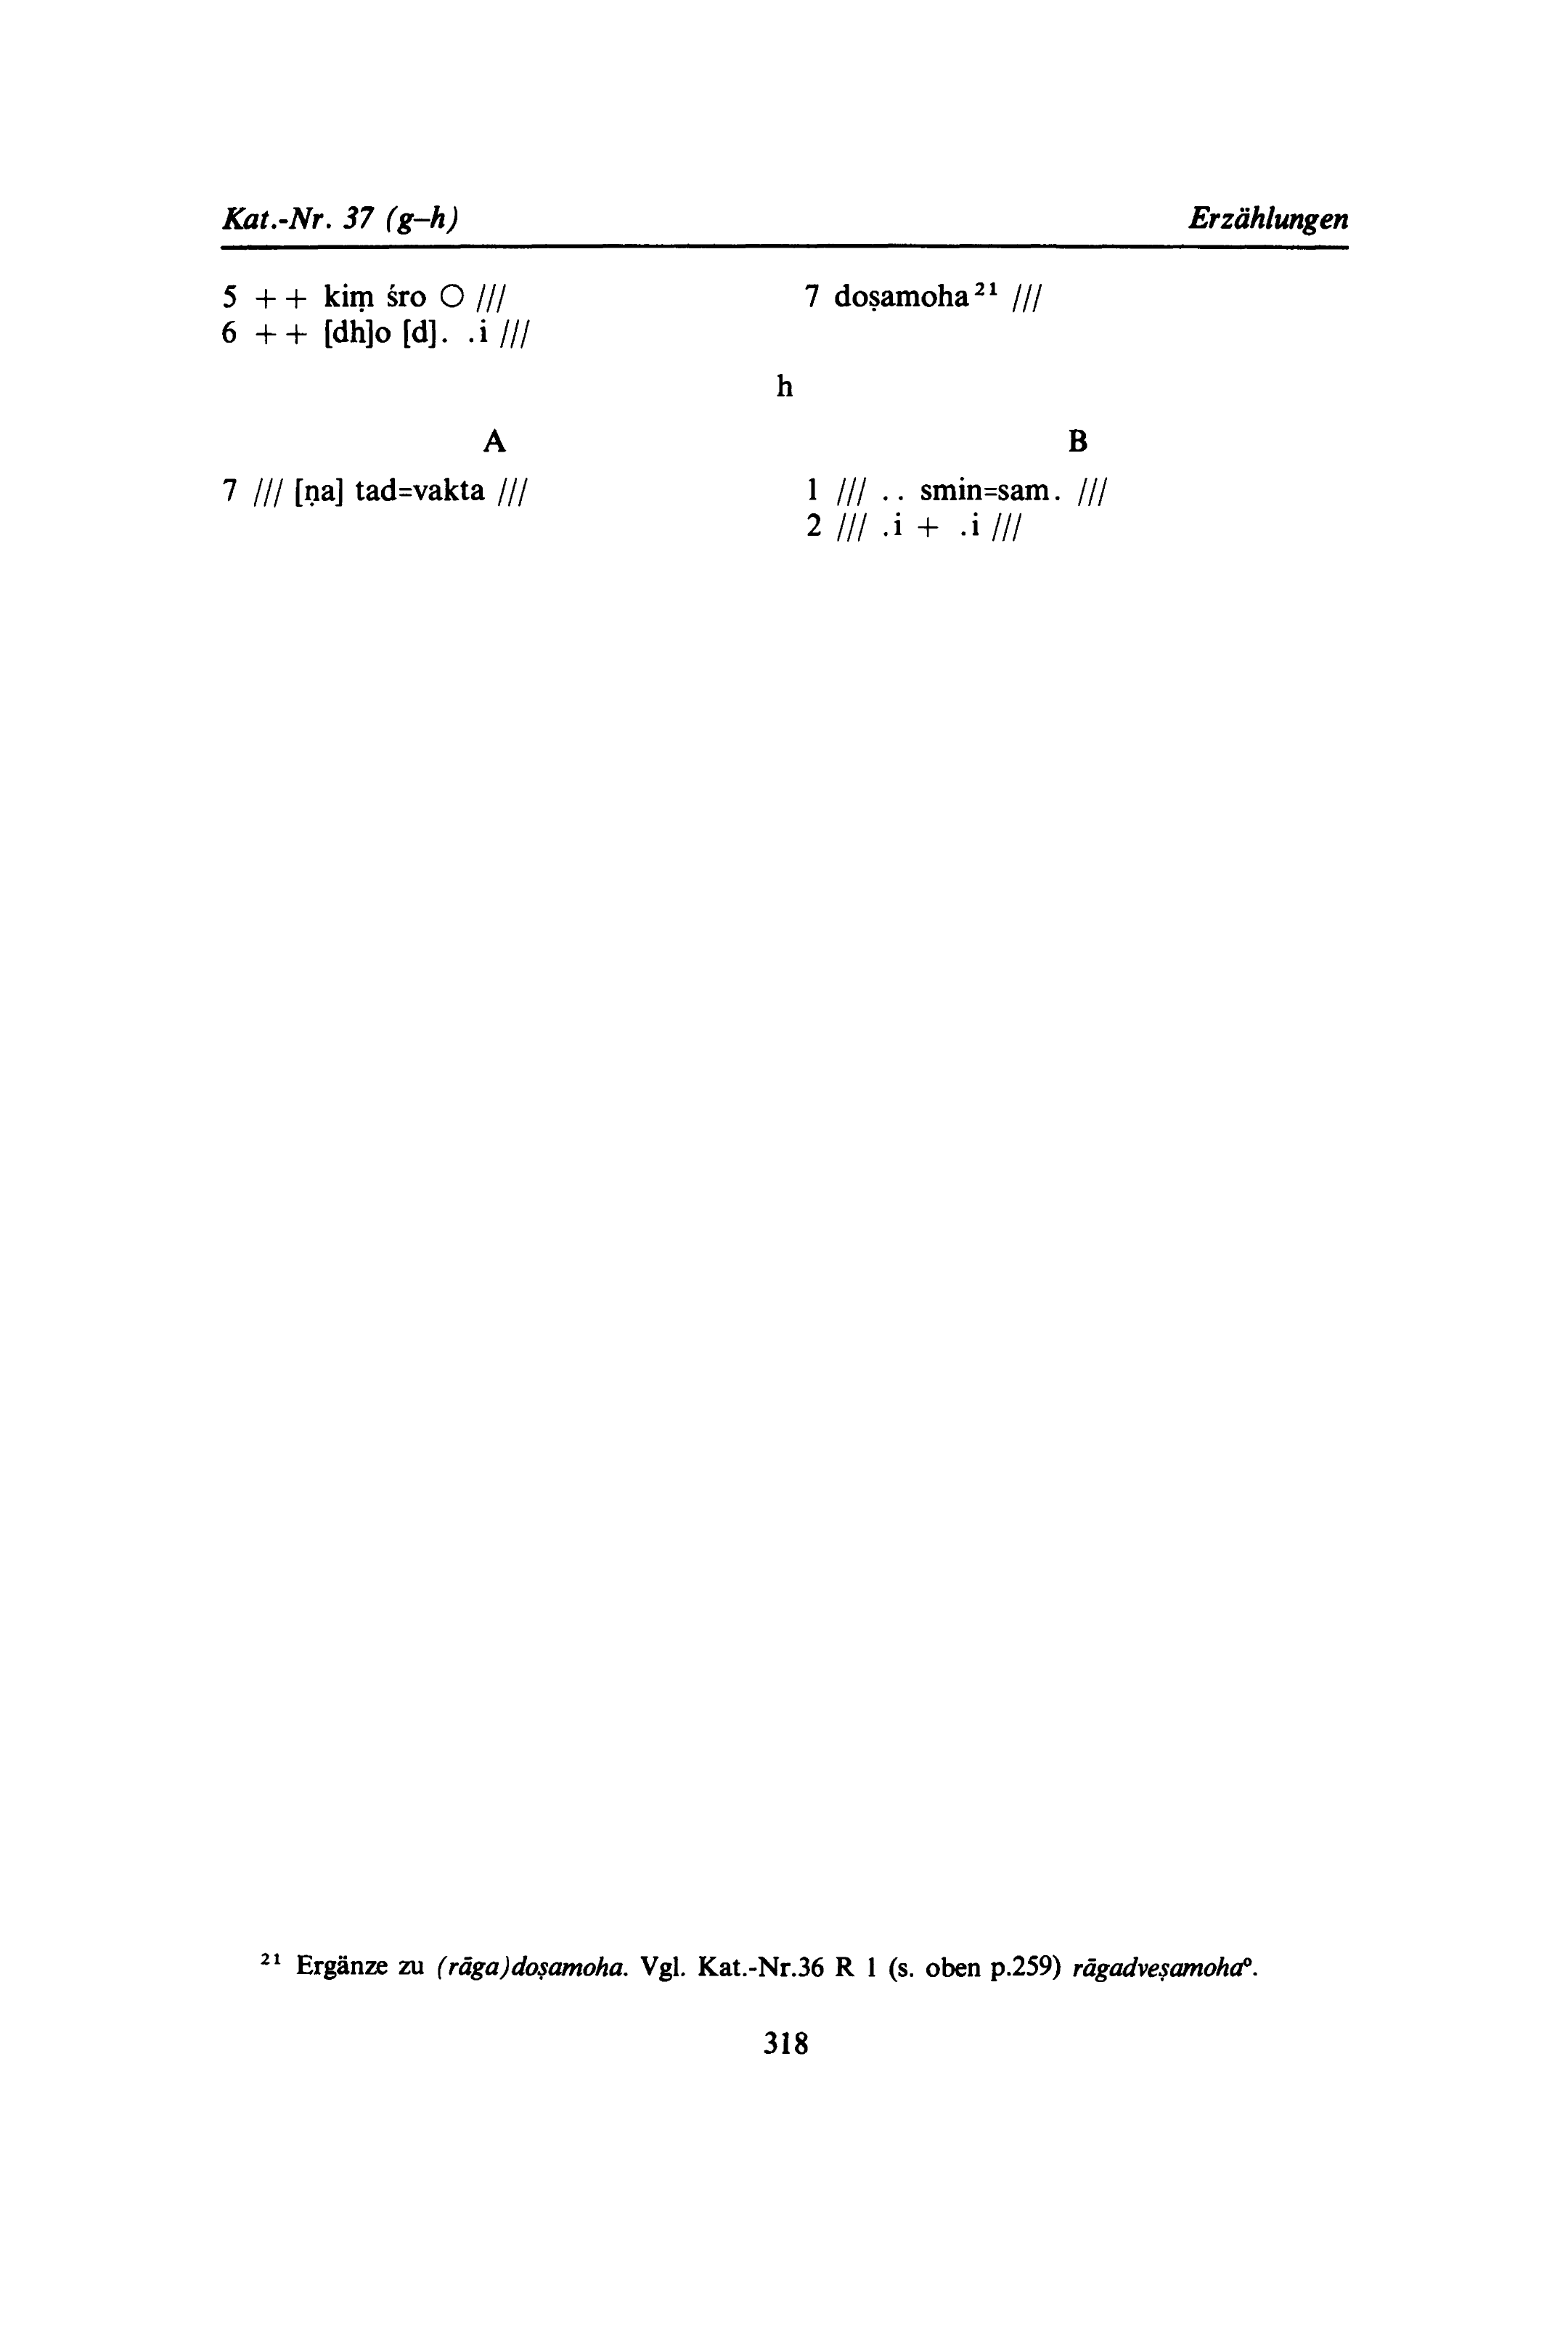 Kat.-Nr. 37 (g–h) Erzählungen
5 + + kiṃ śro O ///
6 + + [dh]o [d]. .i ///
7 doṣamoha²¹ ///
h
A
7 /// [ṇa] tad=vakta ///
B
1 /// .. smin=sam. ///
2 /// .i + .i ///
²¹ Ergänze zu (rāga)doṣamoha. Vgl. Kat.-Nr.36 R 1 (s. oben p.259) rāgadveṣamoha°.
318